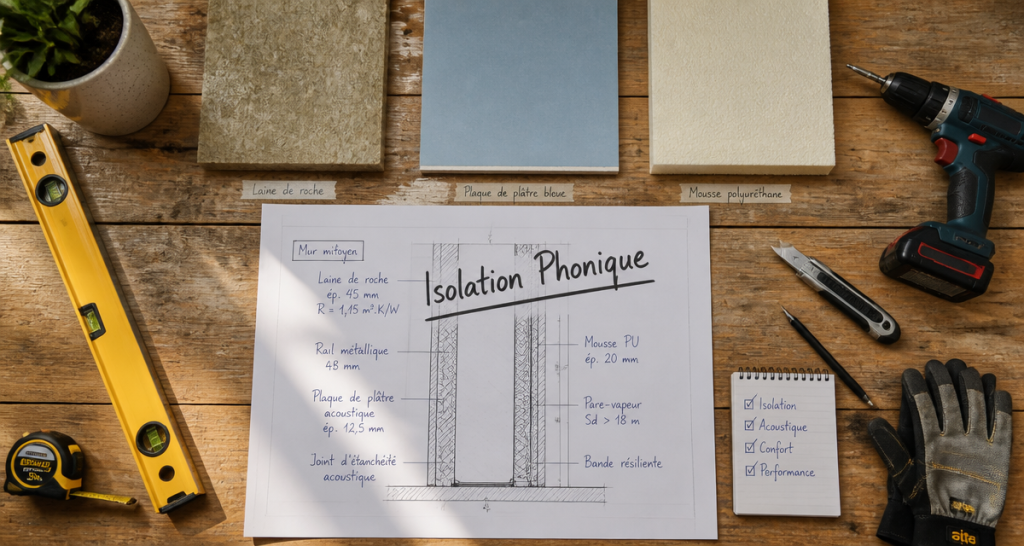 Laine de roche
Plaque de plâtre bleue
Mousse polyuréthane
Isolation Phonique
Mur mitoyen
Laine de roche
ép. 45 mm
R = 1,15 m².K/W
Rail métallique
48 mm
Plaque de plâtre
acoustique
ép. 12,5 mm
Joint d'étanchéité
acoustique
Mousse PU
ép. 20 mm
Pare-vapeur
Sd > 18 m
Bande résiliente
Isolation
Acoustique
Confort
Performance